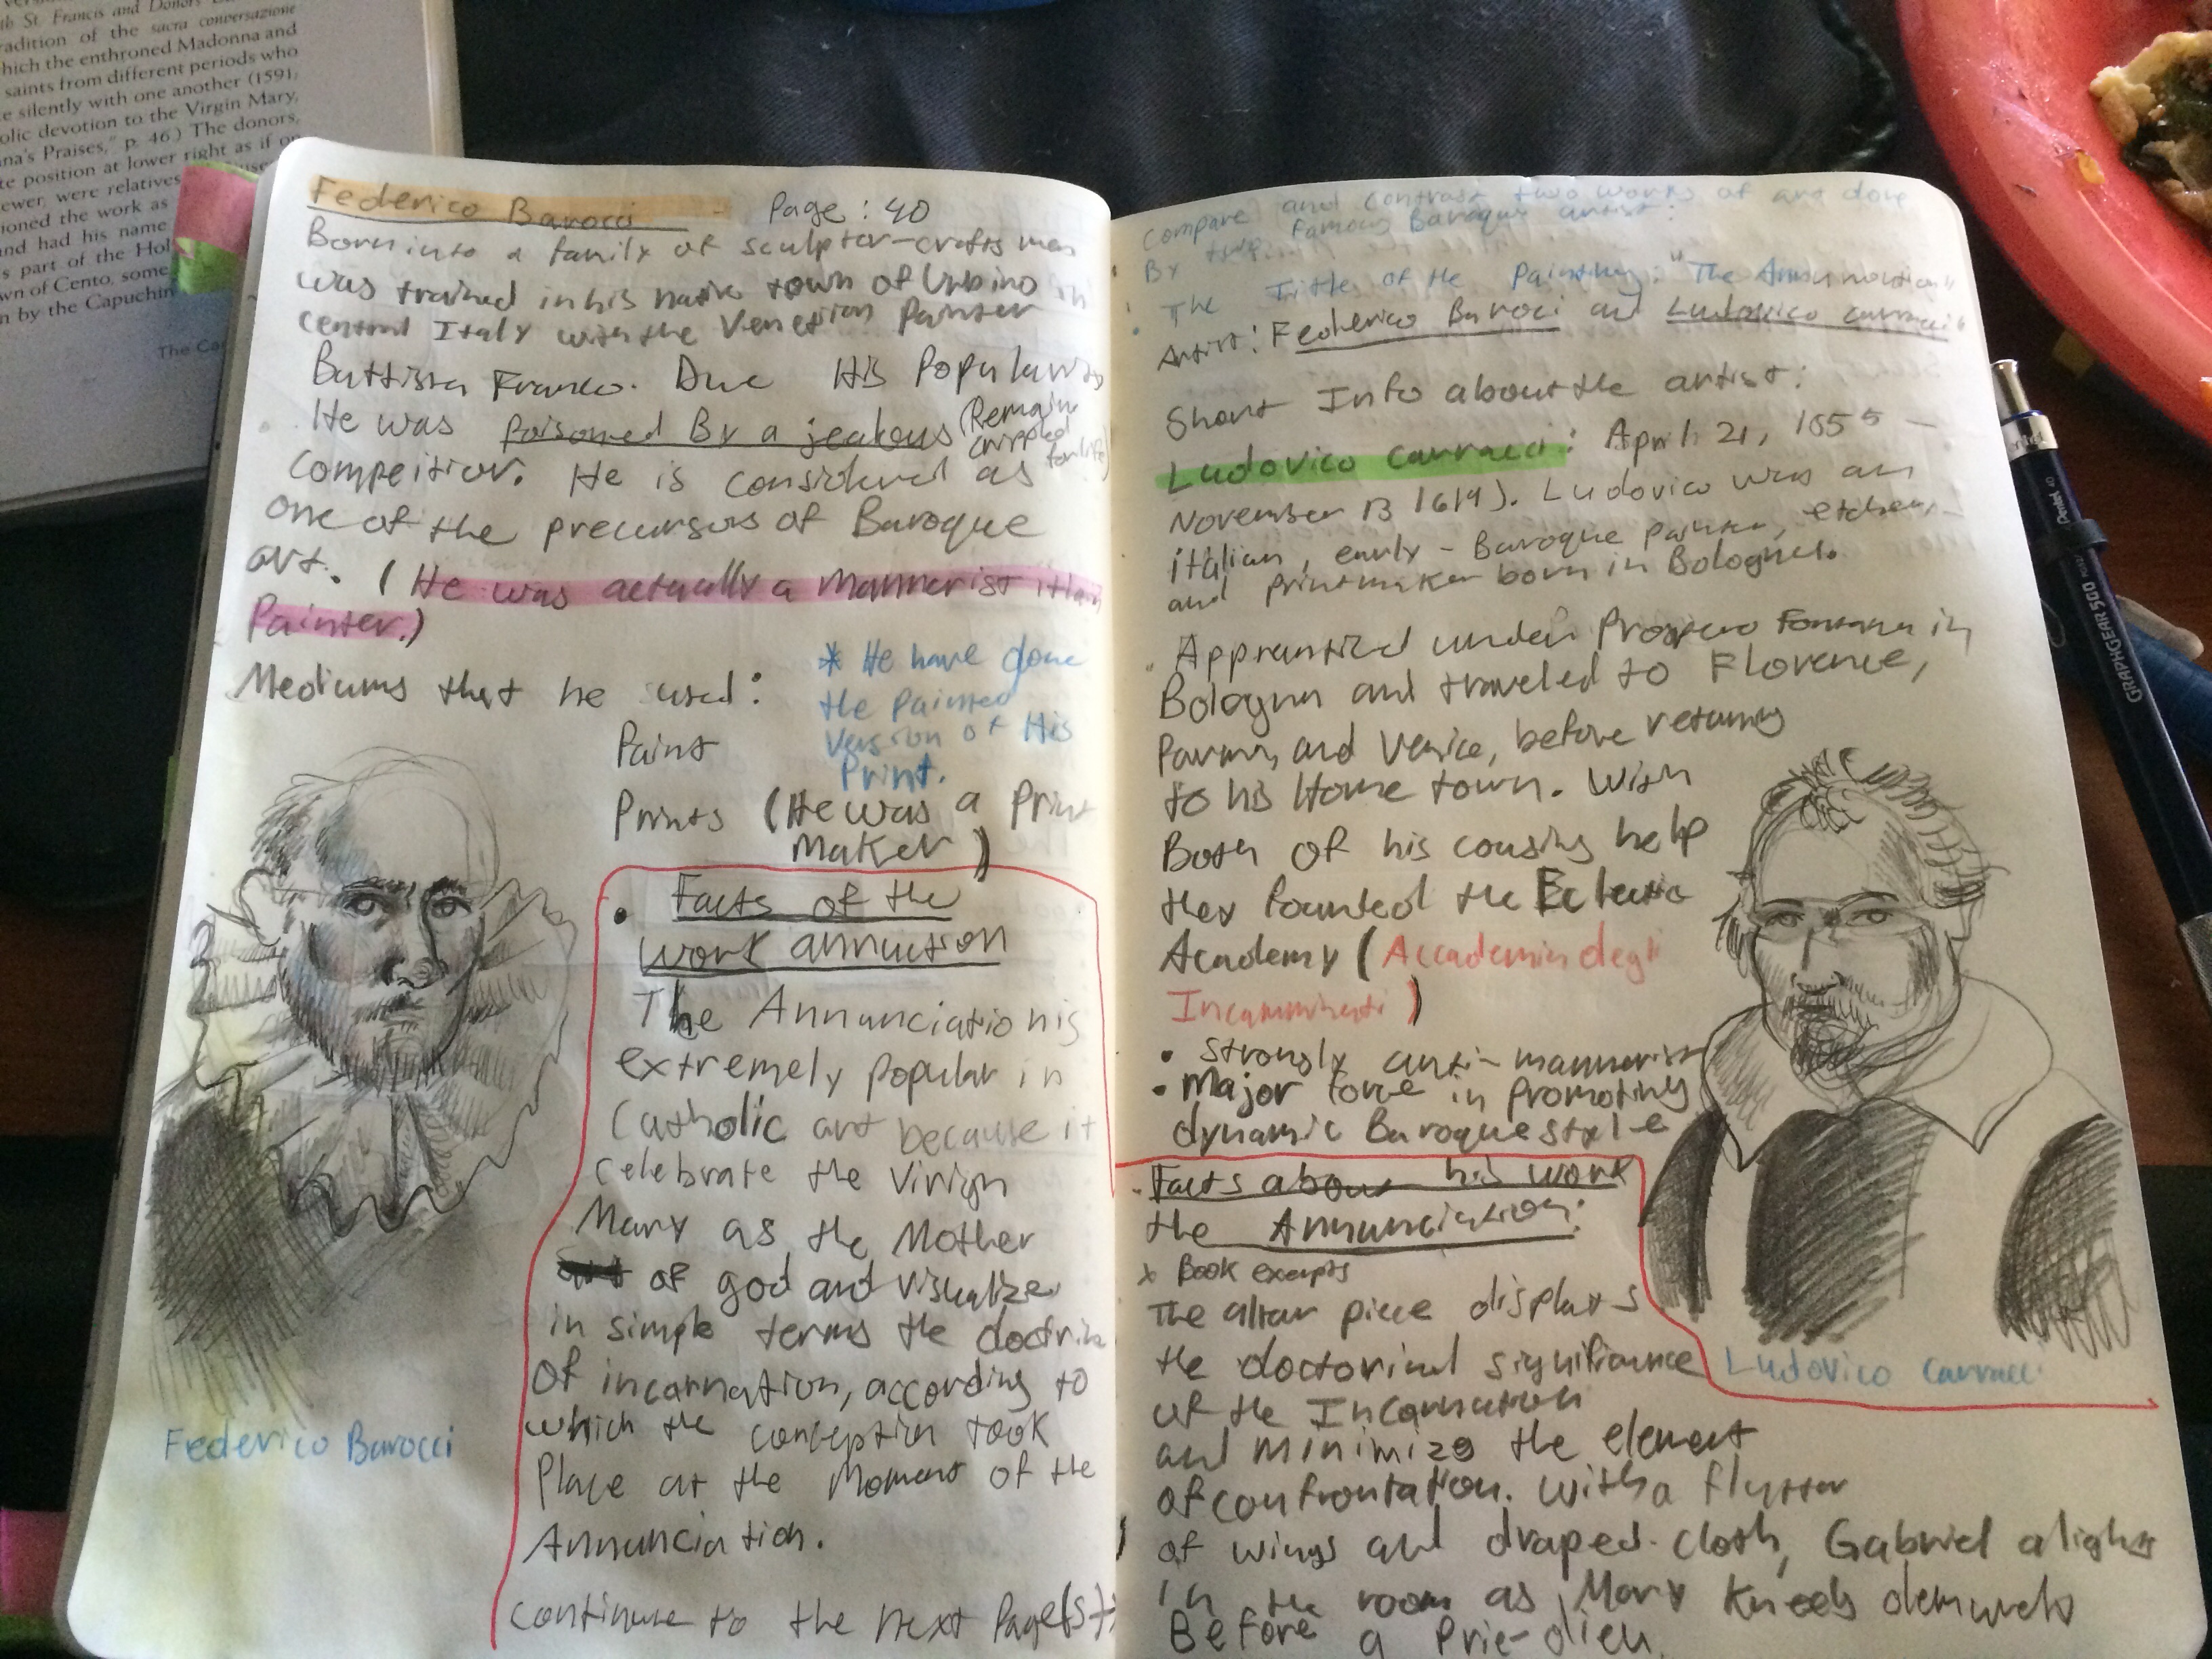 th St. Francis and Donors
radition of the sacra conversazione
hich the enthroned Madonna and
saints from different periods who
e silently with one another (1591;
olic devotion to the Virgin Mary,
na's Praises," p. 46.) The donors,
te position at lower right as if on
ewer, were relatives
ioned the work as
and had his name
s part of the Hol
wn of Cento, some
n by the Capuchin
The Ca
Federico Barocci - Page: 40
Born into a family of sculptor-crafts men
was trained in his native town of Urbino in
central Italy with the Venetian Painter
Battista Franco. Due His Popularity
He was poisoned By a jealous (Remain
crippled
for life)
Compeitior. He is considered as
one of the precursors of Baroque
art. (He was actually a Mannerist Itlain
Painter.)
Mediums that he used:
* He have done
the Painted
Version of His
Print.
Paint
Prints (He was a Print
Maker)
• Facts of the
work annuction
The Annunciation is
extremely popular in
Catholic art because it
celebrate the Virign
Mary as the Mother
of god and visualize
in simple terms the doctrine
of incarnation, according to
which the conception took
Place at the Moment of the
Annunciation.
continue to the next Page(s)
Federico Barocci
Compare and contrast two works of art done
By two famous Baroque artist:
• The Title of the Painting: "The Annunciation"
Artist: Federico Baroci and Ludovico carracci
Short Info about the artist:
Ludovico carracci: April 21, 1555 –
November 13 1619). Ludovico was an
italian, early - Baroque painter, etcher,
and printmaker born in Bologna.
Apprenticed under Prospero Fontana in
Bologna and traveled to Florence,
Parma, and Venice, before returning
to his Home town. With
Both of his cousins help
they founted the Eclectic
Academy (Accademia degli
Incamminati)
• strongly anti-mannerist
• Major force in Promoting
dynamic Baroque style
• Facts about his work
the Annunciation:
x Book exerpts
The altar piece displays
the doctorinal significance
of the Incarnation
and minimizes the element
of confrontation. With a flutter
of wings and draped cloth, Gabriel alights
In the room as Mary kneels demurely
Before a Prie-dieu
Ludovico Carracci
GRAPHGEAR 500
Pentel